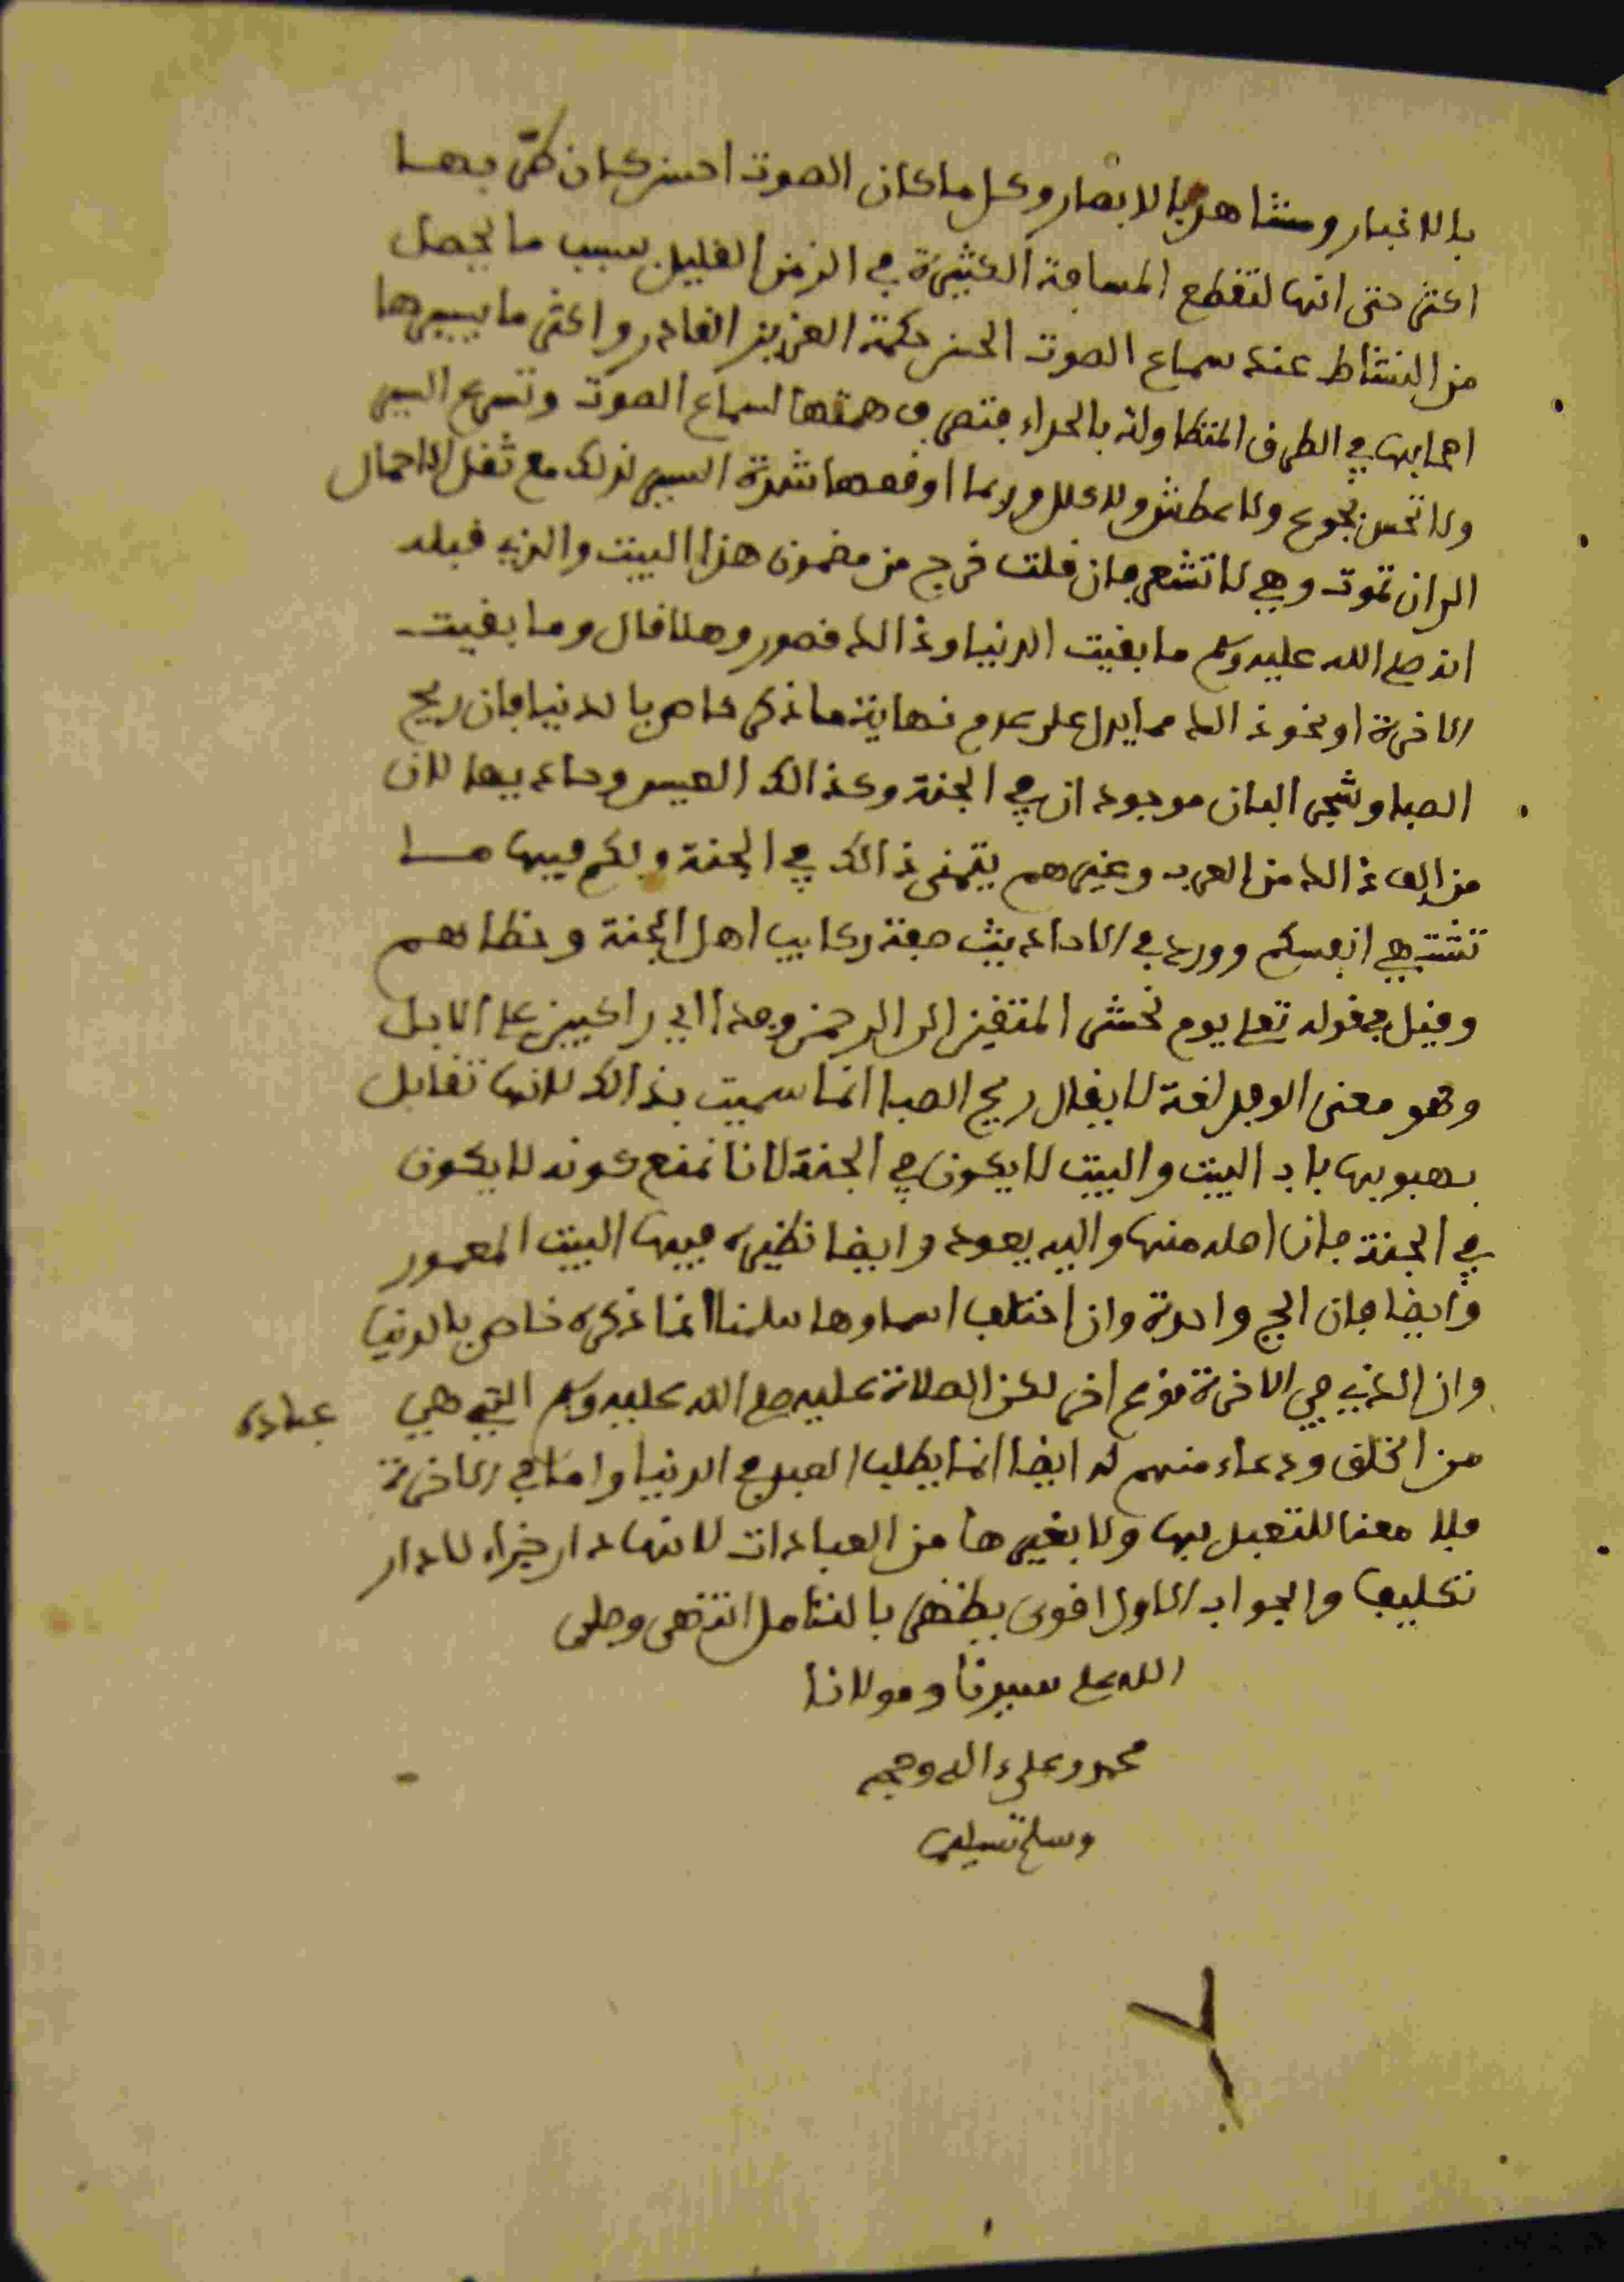 بالاخبار ومشاهد بالابصار وكل ما كان الصوت احسن كان طربها
اكثر حتى انها لتقطع المسافة الكثيرة في الزمن القليل بسبب ما يحصل
من النشاط عند سماع الصوت الحسن حكمة العزيز القادر واكثر ما يسيرها
اصحابها في الطرق المتطاولة بالحداء فتصرف همتها لسماع الصوت وتسرع السير
ولا تحس بجوع ولا عطش ولا كلل وربما اوقعها شدة السير لذلك مع ثقل الاحمال
الى ان تموت وهي لا تشعر فان قلت خرج من مضمون هذا البيت والذي قبله
انه صلى الله عليه وسلم ما بقيت الدنيا وذالك قصور وهلا قال وما بقيت
الاخرة او نحو ذالك مما يدل على عدم نهاية ما ذكر خاص بالدنيا فان ريح
الصبا وشجر البان موجود ان في الجنة وكذالك العيس وحاديها لان
من الف ذالك من العرب وغيرهم يتمنى ذالك في الجنة ولكم فيها ما
تشتهي انفسكم وورد في الاحاديث صفة ركايب اهل الجنة و
وقيل في قوله تعلى يوم نحشر المتقين الى الرحمن وفدا اي راكبين على الابل
وهو معنى الوفد لغة لا يقال ريح الصبا انما سميت بذالك لانها تقابل
بهبوبها باب البيت والبيت لا يكون في الجنة لانا نمنع كونه لا يكون
في الجنة فان اصله منها واليه يعود وايضا نظيره فيها البيت المعمور
وايضا فان الريح واحدة وان اختلف اسماوها سلمنا انما ذكره خاص بالدنيا
وان الذي في الاخرة نوع اخر لكن الصلاة عليه صلى الله عليه وسلم التي هي عبادة
من الخلق ودعاء منهم له ايضا انما يطلب العبد في الدنيا واما في الاخرة
فلا معنا للتعبد بها ولا بغيرها من العبادات لانها دار جزاء لا دار
تكليف والجواب الاول اقوى يظهر بالتامل انتهى وصلى
الله على سيدنا ومولانا
محمد وعلى ءاله وصحبه
وسلم تسليما